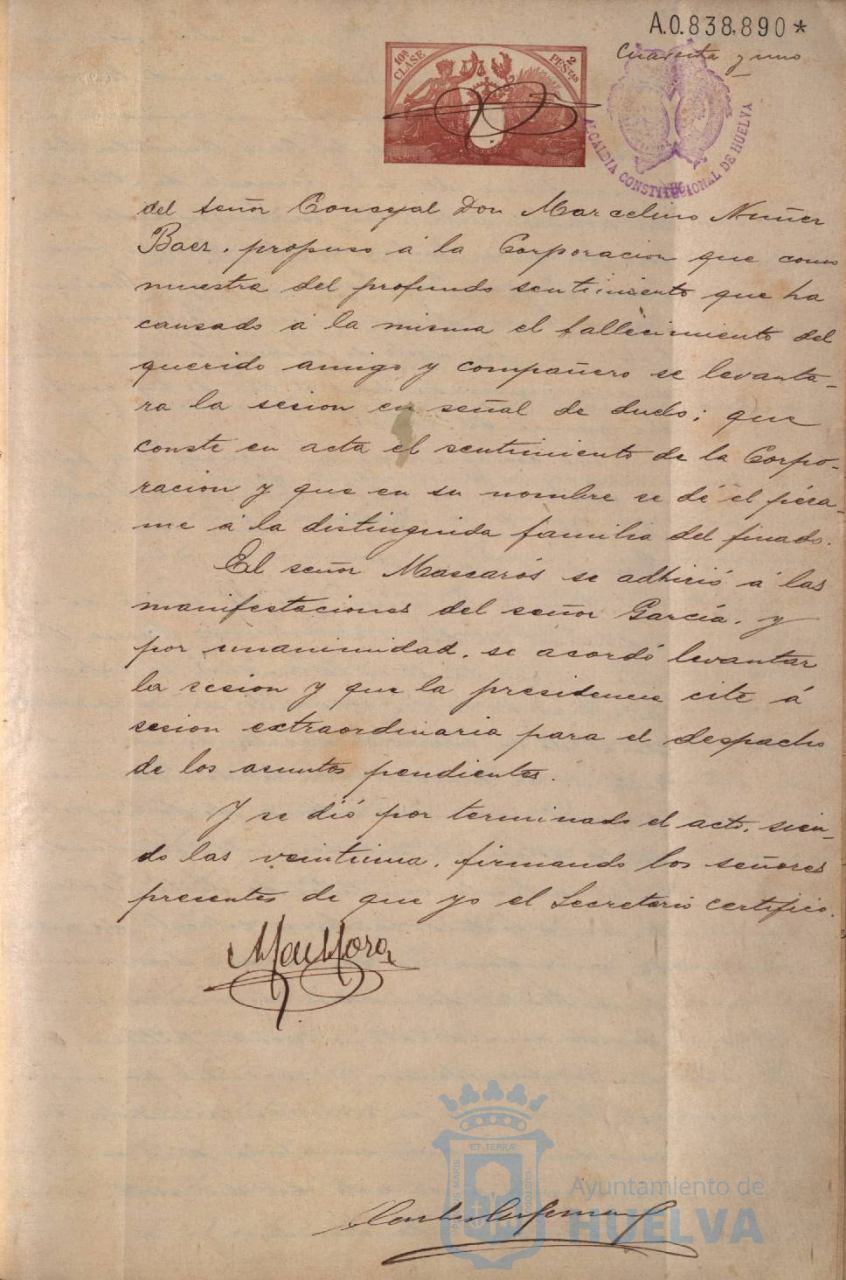 A.0.838.890*
Cuarenta y uno
10ª CLASE
2 PESTAS
ALCALDIA CONSTITUCIONAL DE HUELVA
del señor Concejal Don Marcelino Nuñez
Baez, propuso á la Corporacion que como
muestra del profundo sentimiento que ha
causado á la misma el fallecimiento del
querido amigo y compañero se levanta-
ra la sesion en señal de duelo; que
conste en acta el sentimiento de la Corpo-
racion y que en su nombre se dé el pésa-
me á la distinguida familia del finado.
El señor Mascarós se adhirió á las
manifestaciones del señor García, y
por unanimidad, se acordó levantar
la sesion y que la presidencia cite á
sesion extraordinaria para el despacho
de los asuntos pendientes.
Y se dió por terminado el acto, sien-
do las veintiuna, firmando los señores
presentes de que yo el Secretario certifico.
ET TERRA
Ayuntamiento de
HUELVA